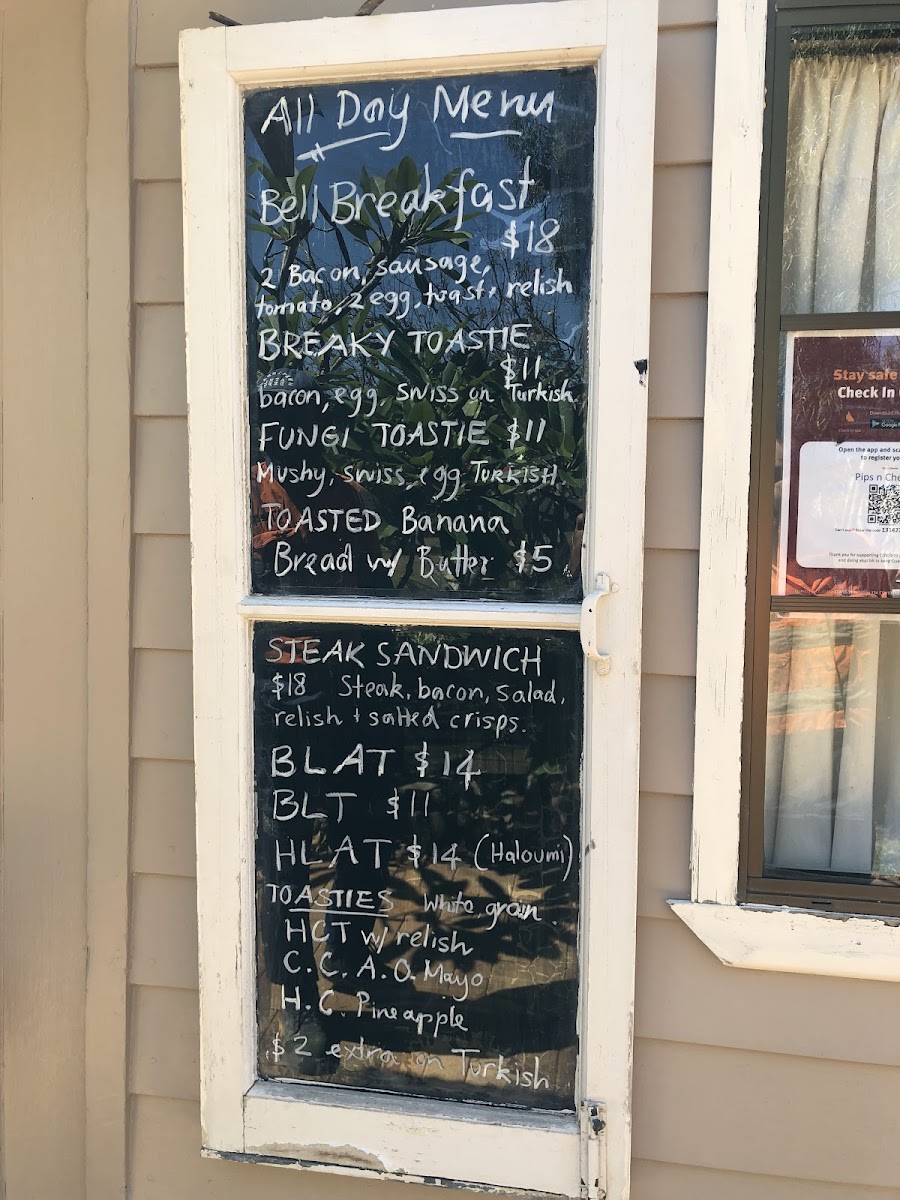 All Day Menu
Bell Breakfast
$18
2 Bacon, sausage,
tomato, 2 egg, toast, relish
BREAKY TOASTIE
$11
bacon, egg, swiss on Turkish.
FUNGI TOASTIE $11
Mushy, swiss, egg TURKISH.
TOASTED Banana
Bread w/ Butter $5
STEAK SANDWICH
$18 Steak, bacon, salad,
relish + salted crisps.
BLAT $14
BLT $11
HLAT $14 (Haloumi)
TOASTIES White grain.
HCT w/ relish
C.C.A.O. Mayo
H.C. Pineapple
$2 extra on Turkish
Stay safe
Check In
Open the app and
to register
Pips n Che